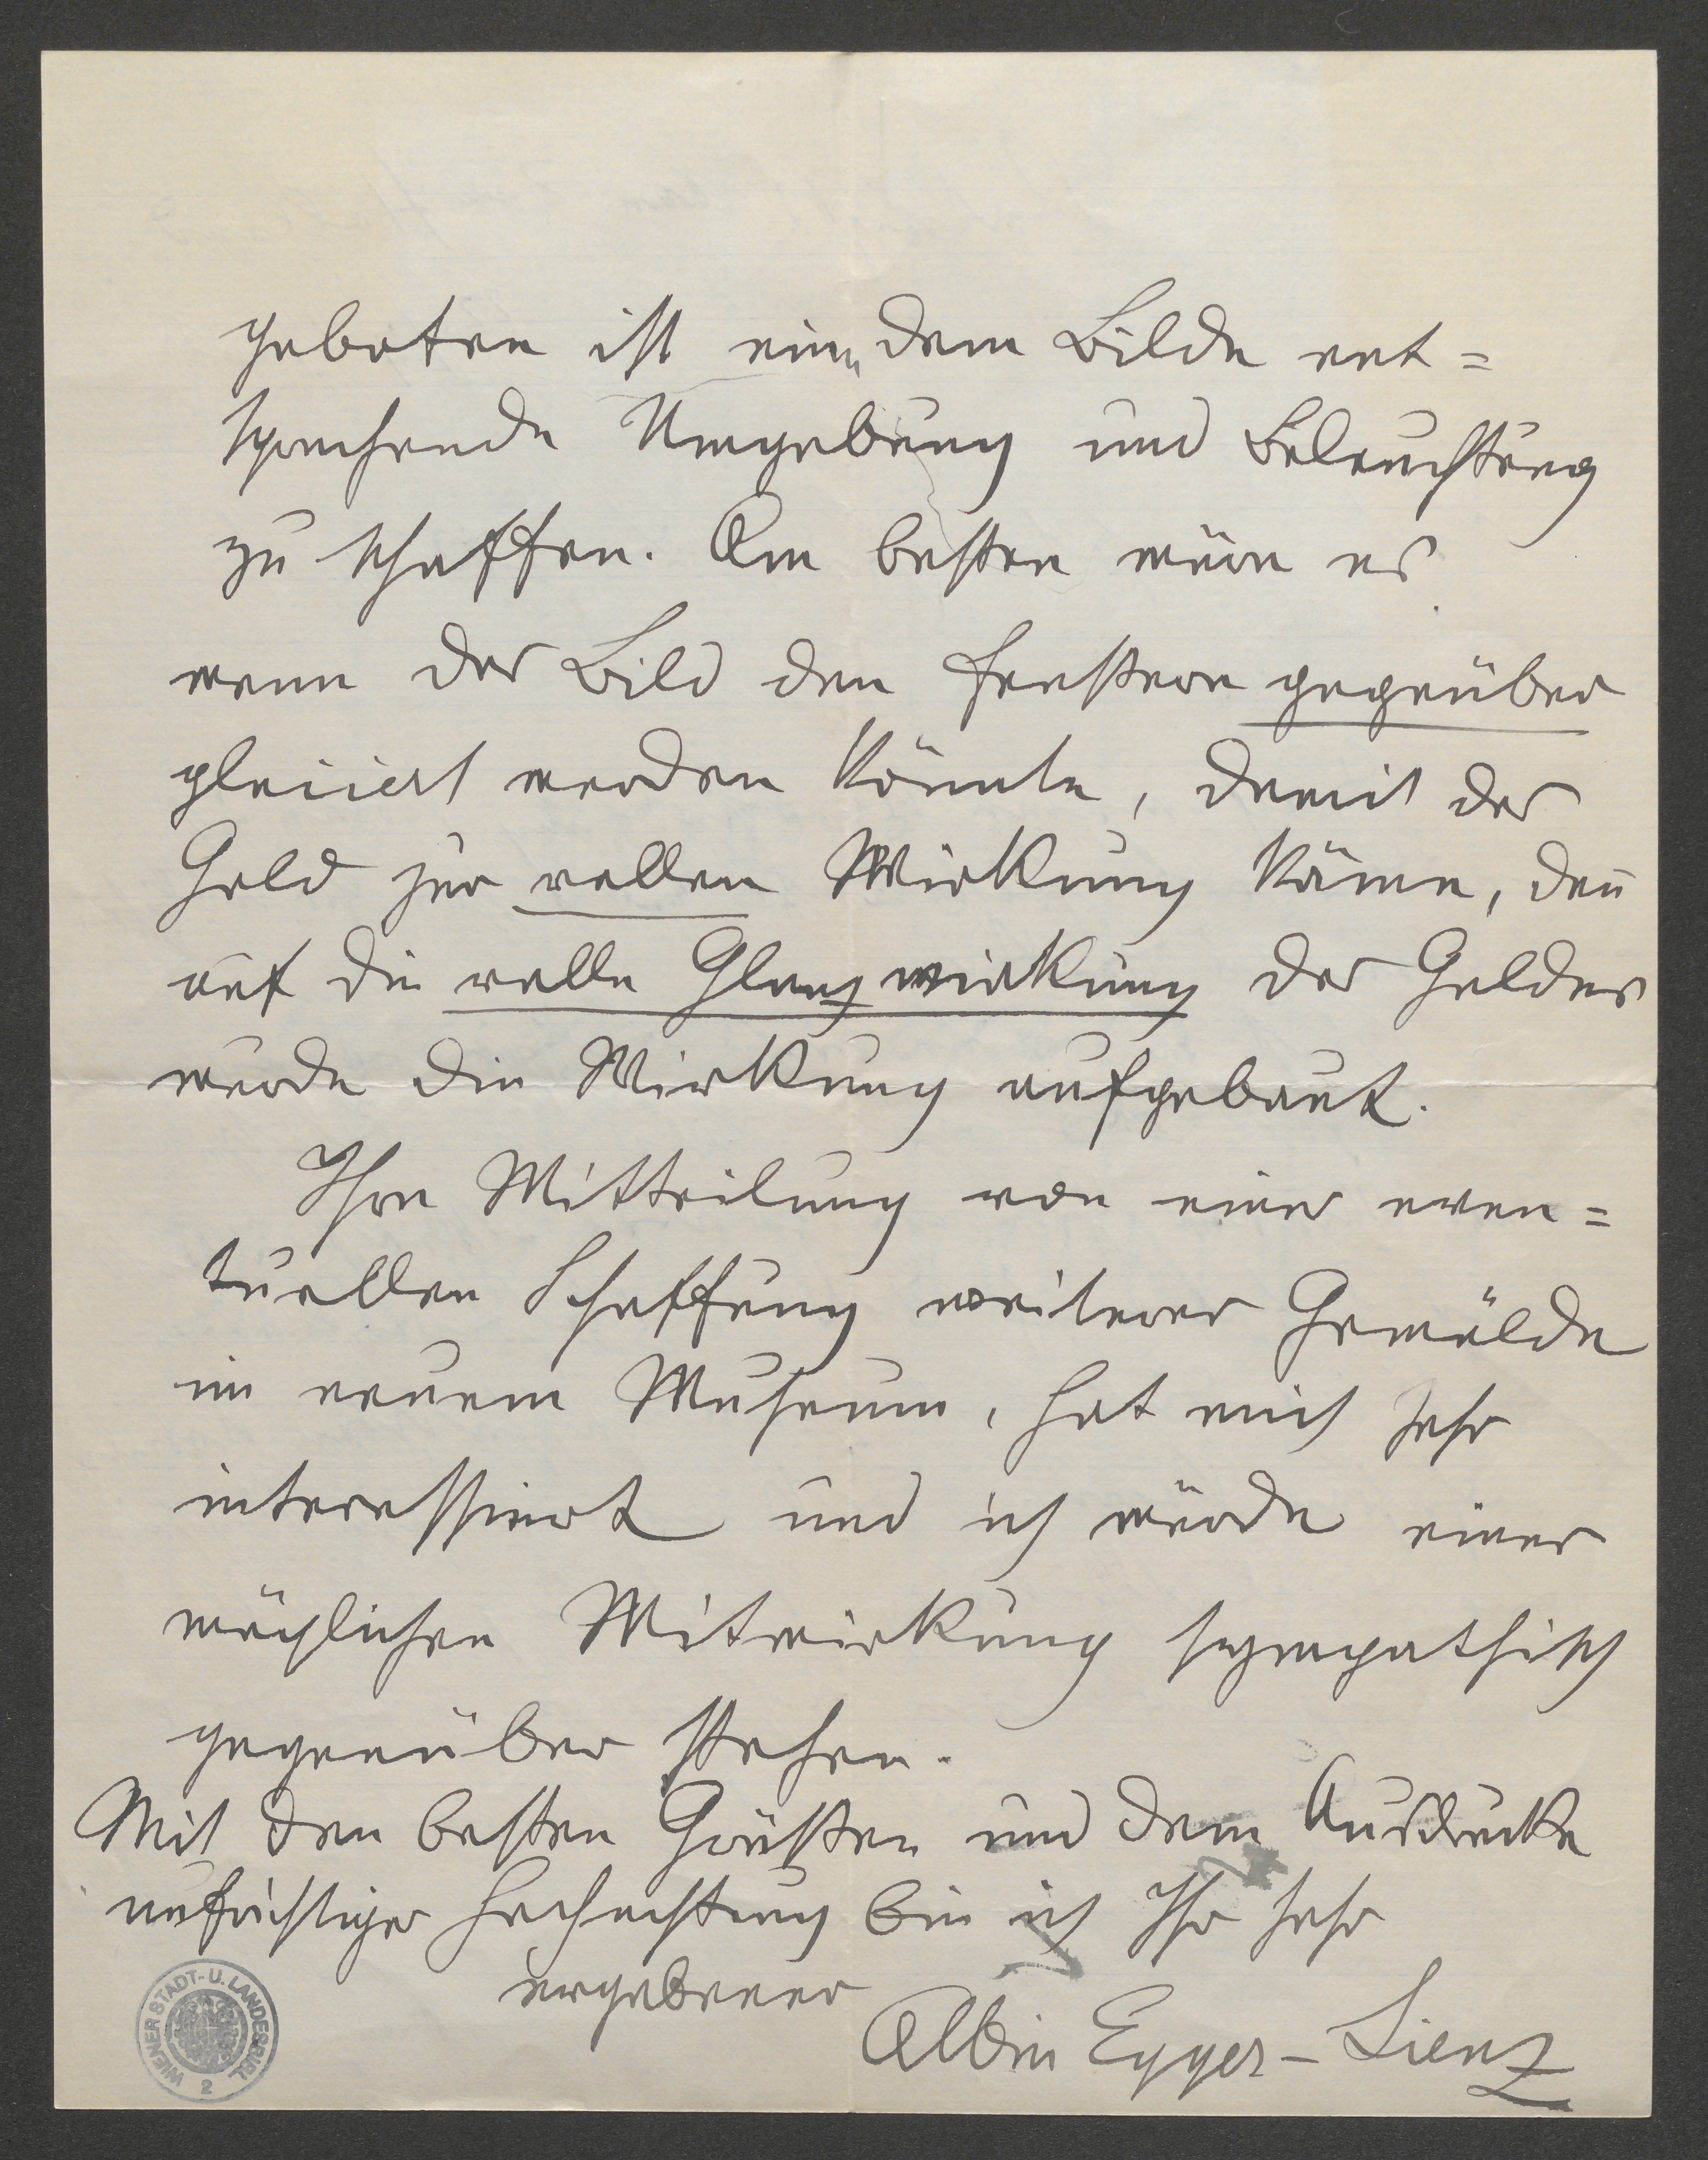 geboten ist eine dem Bilde ent=
sprechende Umgebung und Beleuchtung
zu schaffen. Am besten wäre es
wenn das Bild den Fenstern gegenüber
plaziert werden könnte, damit das
Gold zur vollen Wirkung käme, den̄
auf die volle Glanzwirkung des Goldes
wurde die Wirkung aufgebaut.
Ihre Mitteilung von einer even=
tuellen Schaffung weiterer Gemälde
im neuem Museum, hat mich sehr
interessiert und ich würde einer
möglichen Mitwirkung sympathisch
gegenüber stehen.
Mit den besten Grüßen und dem Ausdrucke
aufrichtiger Hochachtung bin ich Ihr sehr
ergebener
Albin Egger-Lienz
WIENER STADT- U. LANDESBIBL.
2